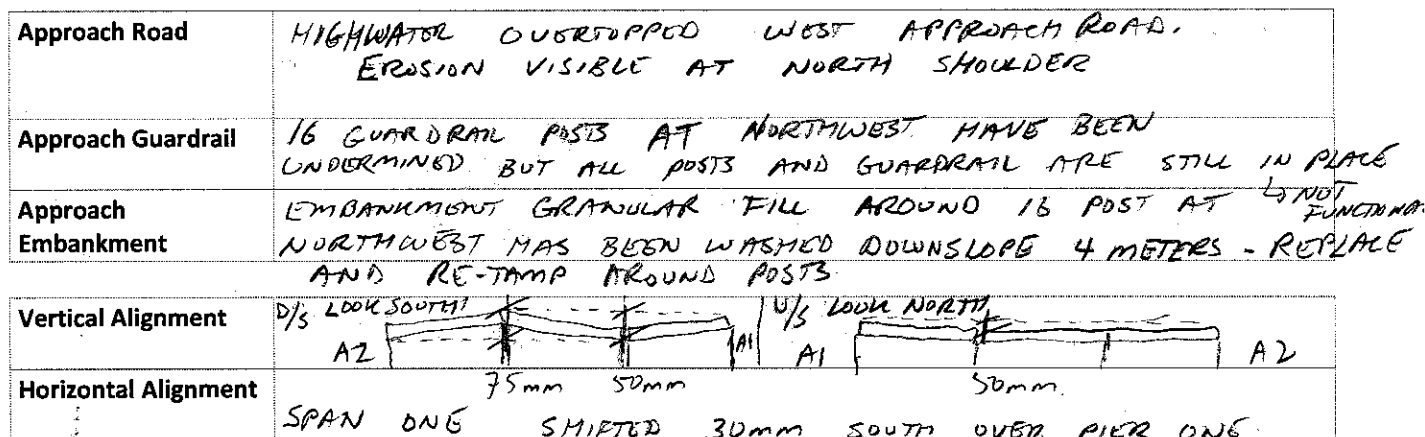 Approach Road
HIGHWATER OVERTOPPED WEST APPROACH ROAD.
EROSION VISIBLE AT NORTH SHOULDER
Approach Guardrail
16 GUARDRAIL POSTS AT NORTHWEST HAVE BEEN
UNDERMINED BUT ALL POSTS AND GUARDRAIL ARE STILL IN PLACE
↳ NOT
FUNCTIONAL
Approach
Embankment
EMBANKMENT GRANULAR FILL AROUND 16 POST AT
NORTHWEST HAS BEEN WASHED DOWNSLOPE 4 METERS - REPLACE
AND RE-TAMP AROUND POSTS
Vertical Alignment
D/S LOOK SOUTH
A2 A1
75mm 50mm
U/S LOOK NORTH
A1 A2
50mm
Horizontal Alignment
SPAN ONE SHIFTED 30mm SOUTH OVER PIER ONE